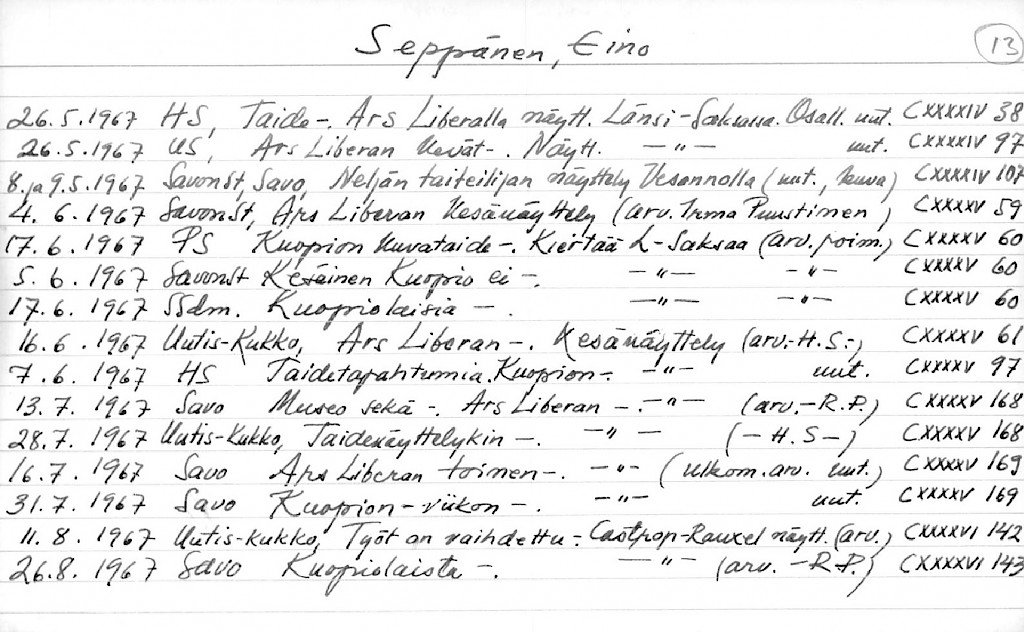 Seppänen, Eino 13
26.5.1967 HS, Taide-. Ars Liberalla näytt. Länsi-Saksassa. Osall. uut. CXXXXIV 38
26.5.1967 US, Ars Liberan Kevät-. Näytt. —"— uut. CXXXXIV 97
8. ja 9.5.1967 Savonst, Savo, Neljän taiteilijan näyttely Vesannolla (uut., kuva) CXXXXIV 107
4.6.1967 Savonst, Ars Liberan Kesänäyttely (arv. Irma Puustinen) CXXXXV 59
17.6.1967 PS Kuopion Kuvataide-. Kiertää L-Saksaa (arv. poim.) CXXXXV 60
5.6.1967 Savonst Kesäinen Kuopio ei -. —"— —"— CXXXXV 60
17.6.1967 SSdm. Kuopiolaisia -. —"— —"— CXXXXV 60
16.6.1967 Uutis-Kukko, Ars Liberan-. Kesänäyttely (arv.-H.S.-) CXXXXV 61
7.6.1967 HS Taidetapahtumia. Kuopion-. —"— uut. CXXXXV 97
13.7.1967 Savo Museo sekä -. Ars Liberan -. —"— (arv.-R.P.) CXXXXV 168
28.7.1967 Uutis-Kukko, Taidenäyttelykin -. —"— (-H.S-) CXXXXV 168
16.7.1967 Savo Ars Liberan toimen-. —"— (ulkom. arv. uut.) CXXXXV 169
31.7.1967 Savo Kuopion-viikon-. —"— uut. CXXXXV 169
11.8.1967 Uutis-Kukko, Työt on vaihdettu-. Castrop-Rauxel näytt. (arv.) CXXXXVI 142
26.8.1967 Savo Kuopiolaista -. —"— (arv. -R.P.) CXXXXVI 143